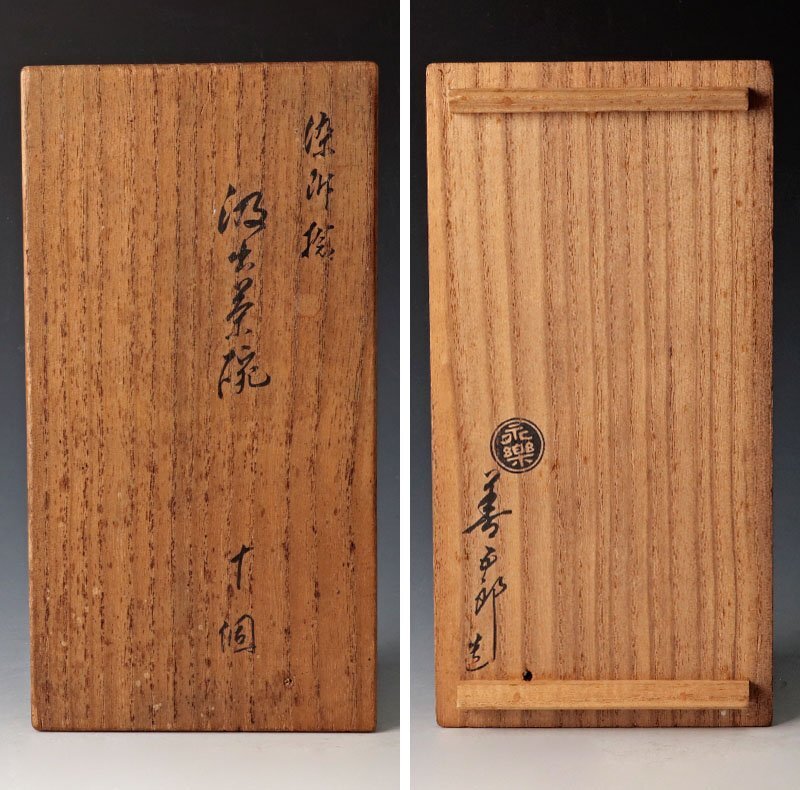 染附捻
汲出茶碗
十個
永樂
善五郎造